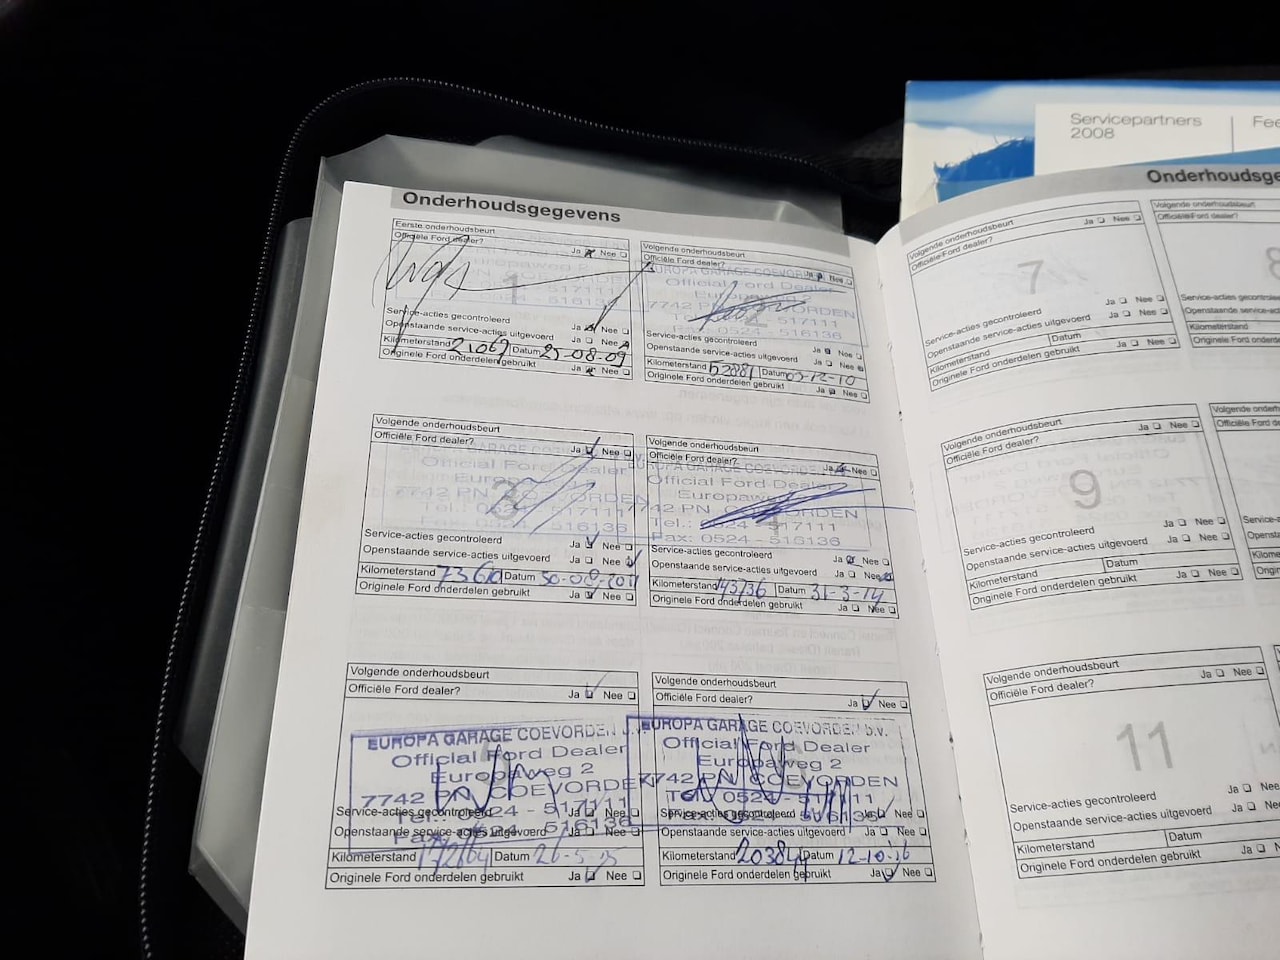 Servicepartners
2008
Fee
Onderhoudsgegevens
Eerste onderhoudsbeurt
Officiële Ford dealer? Ja Nee
1
Service-acties gecontroleerd Ja Nee
Openstaande service-acties uitgevoerd Ja Nee
Kilometerstand Datum 25-08-09
Originele Ford onderdelen gebruikt Ja Nee
Volgende onderhoudsbeurt
Officiële Ford dealer? Ja Nee
EUROPA GARAGE COEVORDEN
Official Ford Dealer
Europaweg 2
7742 PN COEVORDEN
Tel.: 0524 - 517111
Fax: 0524 - 516136
2
Service-acties gecontroleerd Ja Nee
Openstaande service-acties uitgevoerd Ja Nee
Kilometerstand 52881 Datum 03-12-10
Originele Ford onderdelen gebruikt Ja Nee
Volgende onderhoudsbeurt
Officiële Ford dealer? Ja Nee
EUROPA GARAGE COEVORDEN
Official Ford Dealer
Europaweg 2
7742 PN COEVORDEN
Tel.: 0524 - 517111
Fax: 0524 - 516136
3
Service-acties gecontroleerd Ja Nee
Openstaande service-acties uitgevoerd Ja Nee
Kilometerstand Datum
Originele Ford onderdelen gebruikt Ja Nee
Volgende onderhoudsbeurt
Officiële Ford dealer? Ja Nee
EUROPA GARAGE COEVORDEN
Official Ford Dealer
Europaweg
7742 PN COEVORDEN
Tel.: 0524 - 517111
Fax: 0524 - 516136
Service-acties gecontroleerd Ja Nee
Openstaande service-acties uitgevoerd Ja Nee
Kilometerstand 143736 Datum 31-3-14
Originele Ford onderdelen gebruikt Ja Nee
Volgende onderhoudsbeurt
Officiële Ford dealer? Ja Nee
EUROPA GARAGE COEVORDEN B.V.
Official Ford Dealer
Europaweg 2
7742 PN COEVORDEN
Tel.: 0524 - 517111
Fax: 0524 - 516136
Service-acties gecontroleerd Ja Nee
Openstaande service-acties uitgevoerd Ja Nee
Kilometerstand Datum 26-5-15
Originele Ford onderdelen gebruikt Ja Nee
Volgende onderhoudsbeurt
Officiële Ford dealer? Ja Nee
EUROPA GARAGE COEVORDEN B.V.
Official Ford Dealer
Europaweg 2
7742 PN COEVORDEN
Tel.: 0524 - 517111
Fax: 0524 - 516136
Service-acties gecontroleerd Ja Nee
Openstaande service-acties uitgevoerd Ja Nee
Kilometerstand Datum 12-10-16
Originele Ford onderdelen gebruikt Ja Nee
Onderhoudsge
Volgende onderhoudsbeurt
Officiële Ford dealer? Ja Nee
7
Service-acties gecontroleerd Ja Nee
Openstaande service-acties uitgevoerd Ja Nee
Kilometerstand Datum
Originele Ford onderdelen gebruikt Ja Nee
Volgende onderhoudsbeurt
Officiële Ford dealer?
8
Service-acties gecontroleerd
Openstaande service-acties
Kilometerstand
Originele Ford onderde
Volgende onderhoudsbeurt
Officiële Ford dealer? Ja Nee
9
Service-acties gecontroleerd Ja Nee
Openstaande service-acties uitgevoerd Ja Nee
Kilometerstand Datum
Originele Ford onderdelen gebruikt Ja Nee
Volgende onderhoudsbeurt
Officiële Ford dealer?
Service-a
Openst
Kilome
Origin
Volgende onderhoudsbeurt
Officiële Ford dealer? Ja Nee
11
Service-acties gecontroleerd Ja Nee
Openstaande service-acties uitgevoerd Ja Nee
Kilometerstand Datum
Originele Ford onderdelen gebruikt Ja